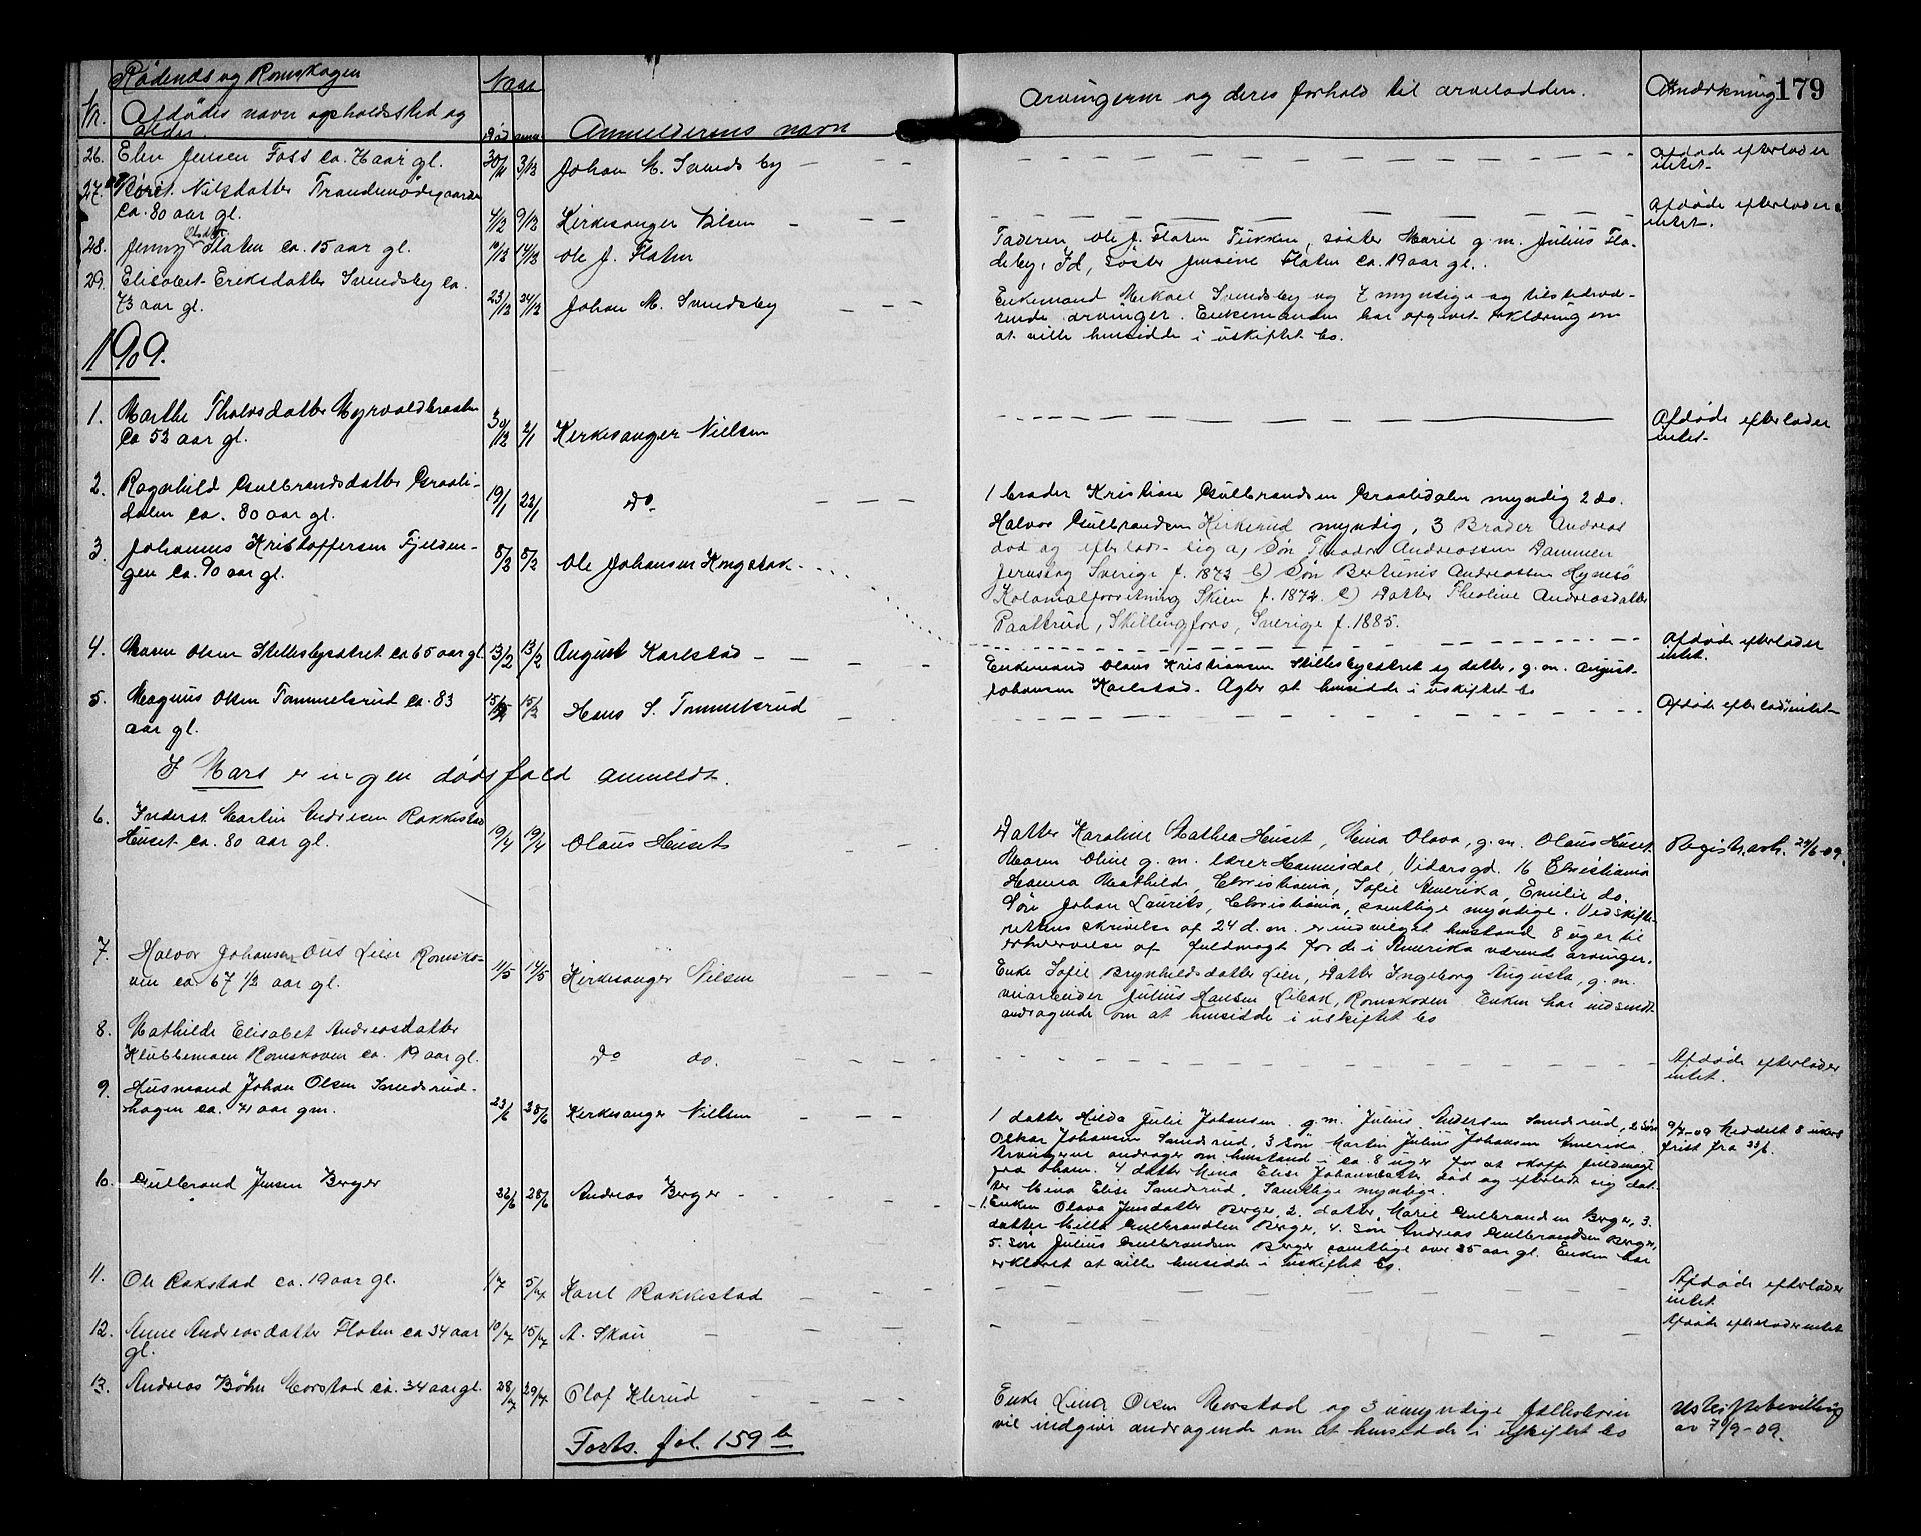 Rødenes og Romskogen
Naar
Arvingerne og deres forhold til arveladden.
Anmerkning 179
Nr. Afdødes navn opholdssted og
alder
død anm. Anmelderens navn
26. Elen Jensen Foss ca. 76 aar gl. 30/11 3/12 Johan M. Svendsby
Afdøde efterlader
intet.
27. Børit Nilsdatter Trandemødegaarden
ca. 80 aar gl. 4/12 9/12 Kirkesanger Nilsen
Afdøde efterlader
intet.
28. Jenny Olsdtr. Flaten ca. 15 aar gl. 10/12 14/12 Ole J. Flaten
Faderen Ole J. Flaten Fukken, søster Marie g.m. Julius Fla-
deby, Id, søster Jensine Flaten ca. 19 aar gl.
29. Elisabet Eriksdatter Svendsby ca.
73 aar gl. 23/12 24/12 Johan M. Svendsby
Enkemand Mikael Svendsby og 7 myndige og tilstedevæ-
rende arvinger. Enkemanden har afgivet erklæring om
at ville hensidde i uskiftet bo.
1909.
1. Marthe Tholvsdatter Myrvoldbraaten
ca 53 aar gl. 30/12 2/1 Kirkesanger Nielsen
Afdøde efterlader
intet.
2. Ragnhild Gulbrandsdatter Graali-
dalen ca. 80 aar gl. 19/1 22/1 Do.
1 broder Kristian Gulbrandsen Graalidalen myndig 2 do.
Halvor Gulbrandsen Kirkerud myndig, 3 Broder Andreas
død og efterladt sig a) Søn Theodor Andreassen Dammen
Jernskog Sverige f. 1872 b) Søn Bertinis Andreassen Hjemsø
Kolonialforretning Skien f. 1872. c) Datter Theoline Andreasdatter
Paaterud, Skillingfors, Sverige f. 1885.
3. Johannes Kristoffersen Fjelden-
gen ca. 90 aar gl. 5/2 5/2 Ole Johansen Kongstok
Afdøde efterlader
intet.
4. Maren Olsen Skillebyeatret ca 65 aar gl 13/2 13/2 August Karlstad
Enkemand Olaus Kristiansen Skillebyeatret og datter, g.m. August
Johansen Karlstad. Agter at hensidde i uskiftet bo
5. Magnus Olsen Tommelsrud ca. 83
aar gl. 15/2 15/2 Hans S. Tommelsrud
Afdøde efterlader intet
I Mars er ingen dødsfald anmeldt.
6. Inderst Martin Andresen Rakkestad
Huset ca. 80 aar gl. 19/4 19/4 Olaus Huset
Datter Karoline Mathea Huset, Mina Olava, g.m. Olaus Huset
Maren Oline g.m. lærer Hannisdal, Vidarsgd. 16 Christiania
Hanna Mathilde, Christiania, Sofie Amerika, Emilie do.
Søn Johan Laurits, Christiania, samtlige myndige. Ved skifte-
rettens skrivelse af 24 d.m. er indvilget henstand 8 uger til
erhvervelse af fuldmagt for de i Amerika værende arvinger.
Registr. avh. 29/6-09.
7. Halvor Johansen Ous Lien Romsko-
ven ca 67 1/2 aar gl. 11/5 14/5 Kirkesanger Nilsen
Enke Sofie Brynhildsdatter Lien, Datter Ingeborg Augusta, g.m.
veiarbeider Julius Hansen Libak, Romskoven. Enken har indsendt
andragende om at hensidde i uskiftet bo
8. Mathilde Elisabet Andreasdatter
Klubbemoen Romskoven ca. 19 aar gl. Do do.
Afdøde efterlader
intet.
9. Husmand Johan Olsen Smedsrud-
hagen ca. 71 aar gm. 23/6 28/6 Kirkesanger Nielsen
1 datter Hilda Julie Johansen g.m. Julius Andersen Smedsrud, 2 Søn
Oskar Johansen Smedsrud, 3 Søn Martin Julius Johansen Amerika.
Arvingerne andrager om henstand i ca. 8 uger for at skaffe fuldmagt
fra ham. 4 datter Mina Elise Johansdatter død og efterladt sig dat-
ter Mina Elise Smedsrud. Samtlige myndige.
9/7-09 Meddelt 8 ukers
frist fra 23/6.
10. Gulbrand Jensen Berger 22/6 28/6 Andreas Berger
1. Enken Olava Jensdatter Berger, 2. datter Marie Gulbrandsen Berger, 3.
datter Milla Gulbrandsen Berger, 4. Søn Andreas Gulbrandsen Berger,
5. Søn Julius Gulbrandsen Berger samtlige over 25 aar gl. Enken har
erklæret at ville hensidde i uskiftet bo.
11. Ole Rakstad ca. 19 aar gl. 1/7 5/7 Karl Rakkestad
Afdøde efterlader
intet.
12. Anne Andreasdatter Flaten ca 34 aar
gl. 10/7 15/7 A. Skau
Afdøde efterlader intet
13. Andreas Bøhn Morstad ca. 34 aar gl. 28/7 29/7 Olaf Klerud
Enke Lina Olsen Morstad og 3 umyndige fælleobørn
vil indgive andragende om at hensidde i uskiftet bo
Uskiftebevilling
av 7/9-09.
Forts. fol. 159 b